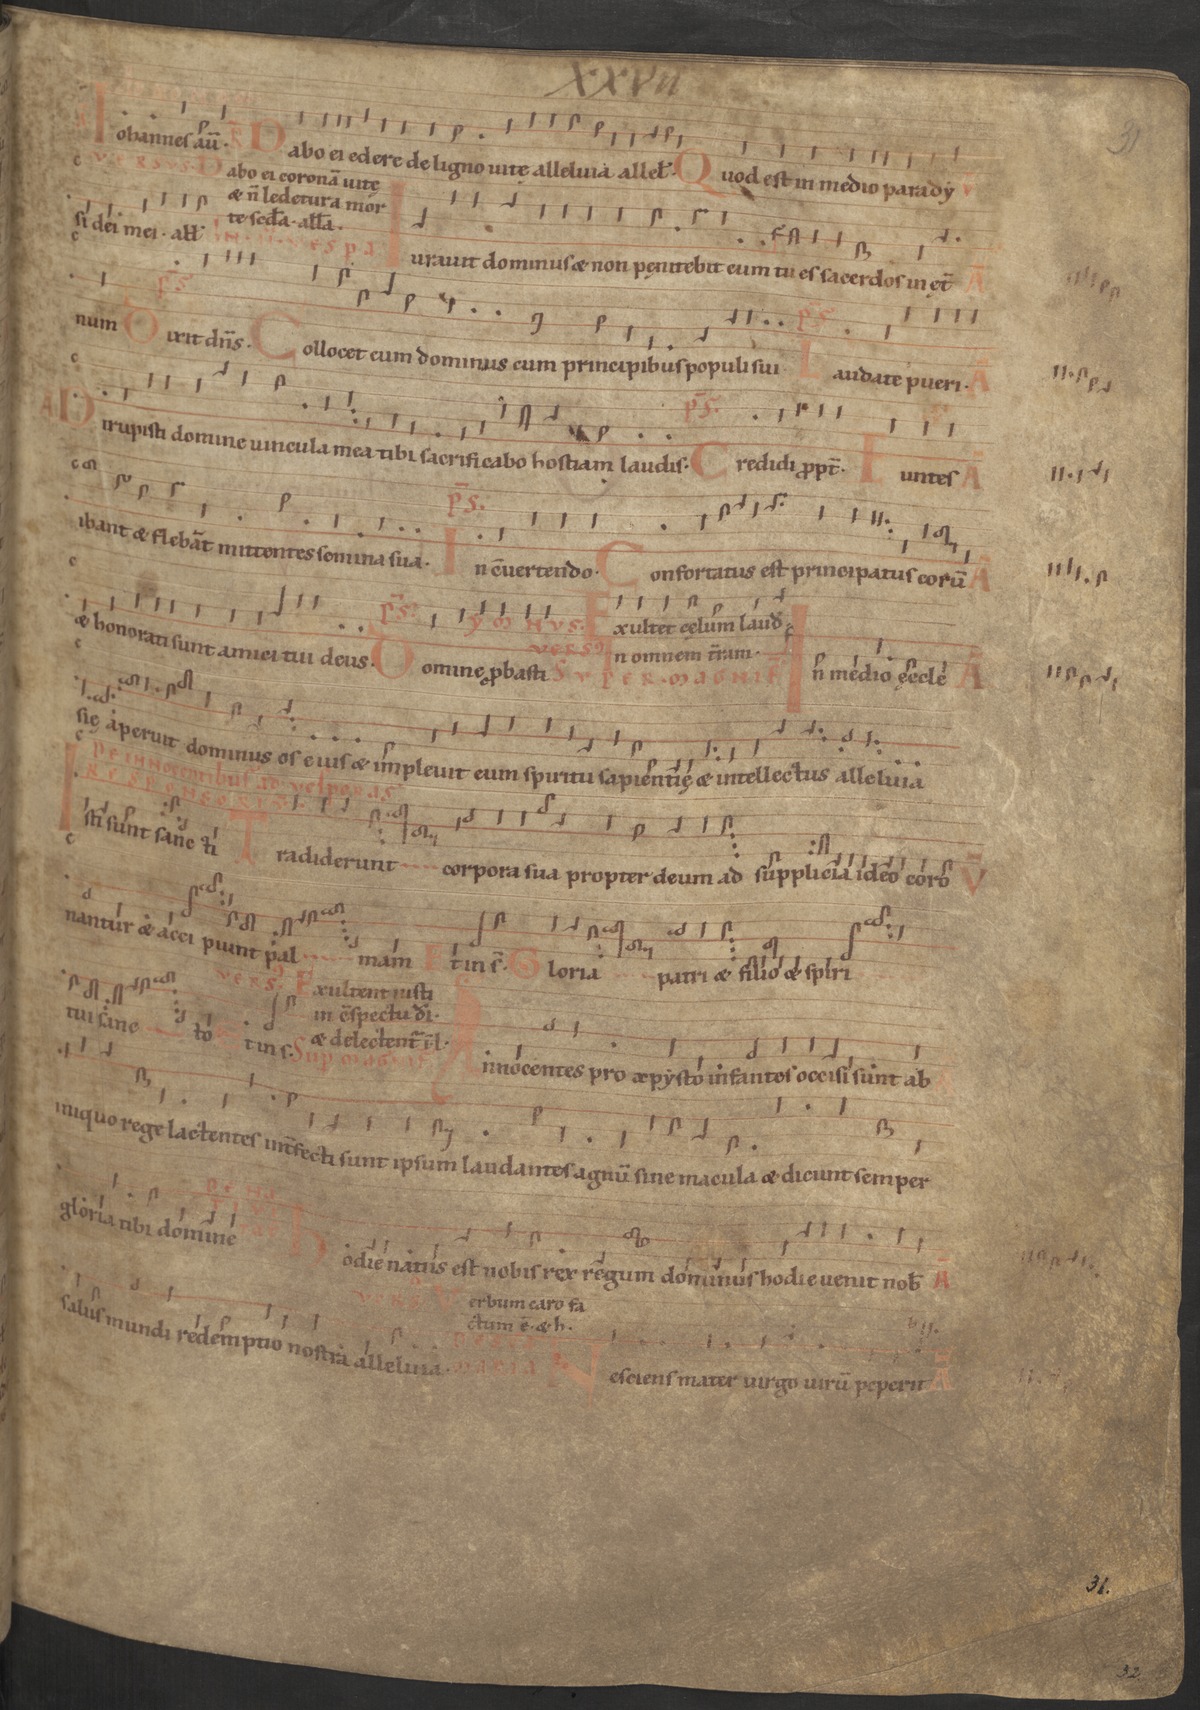 XXVII
31
Iohannes aū. R̄ Dabo ei edere de ligno uite alleluia allel. Quod est in medio parady V̄
VERSVS Dabo ei coronā uite
& n̄ ledetura mor
te scd̄a. all̄a.
si dei mei. all̄ IN II VESPA Iurauit dominus & non penitebit eum tu es sacerdos in et̄ Ā
num pS. Dixit dn̄s. Collocet eum dominus cum principibus populi sui pS. Laudate pueri. Ā
Dirupisti domine uincula mea tibi sacrificabo hostiam laudis. pS. Credidi ꝓpt̄. Euntes Ā
ibant & flebāt mittentes semina sua. pS. In cōuertendo. Confortatus est principatus eorū Ā
& honorati sunt amici tui deus. pS. Domine ꝓbasti YMNVS. Exultet celum laud
VERS In omnem tr̄am.
SVPER MAGNIF In medio eccle Ā
sie aperuit dominus os eius & impleuit eum spiritu sapientie & intellectus alleluia
De Innocentibus ad vesperas
RESPONSORIV.
Isti sunt sanc ti Tradiderunt corpora sua propter deum ad supplicia ideo coro V̄
nantur & acci piunt pal mam Et in s̄. Gloria patri & filio & spiri
tui sanc to tin s. VERS. Exultent iusti
in cōspectu dī.
& delectent̄ ī l.
Sup magnif Innocentes pro xp̄ysto infantes occisi sunt ab
iniquo rege lactentes int̄fecti sunt ipsum laudantes agnū sine macula & dicunt semper
gloria tibi domine Hodie natus est nobis rex regum dominus hodie uenit nob̄ Ā
salus mundi redemptio nostra alleluia. VERS. Verbum caro fa
ctum ē. & h.
MARIA Nesciens mater uirgo uirū peperit Ā
31.
32